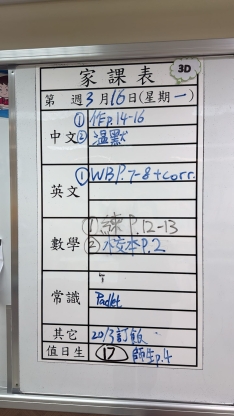 家課表
3D
第 週3月16日(星期一)
中文 ①作P.14-16
②溫默
英文 ①WB P.7-8+corr.
數學 ①練P.12-13
②小交本P.2
常識 Padlet
其它 20/3訂飯
值日生 17 師生p.4